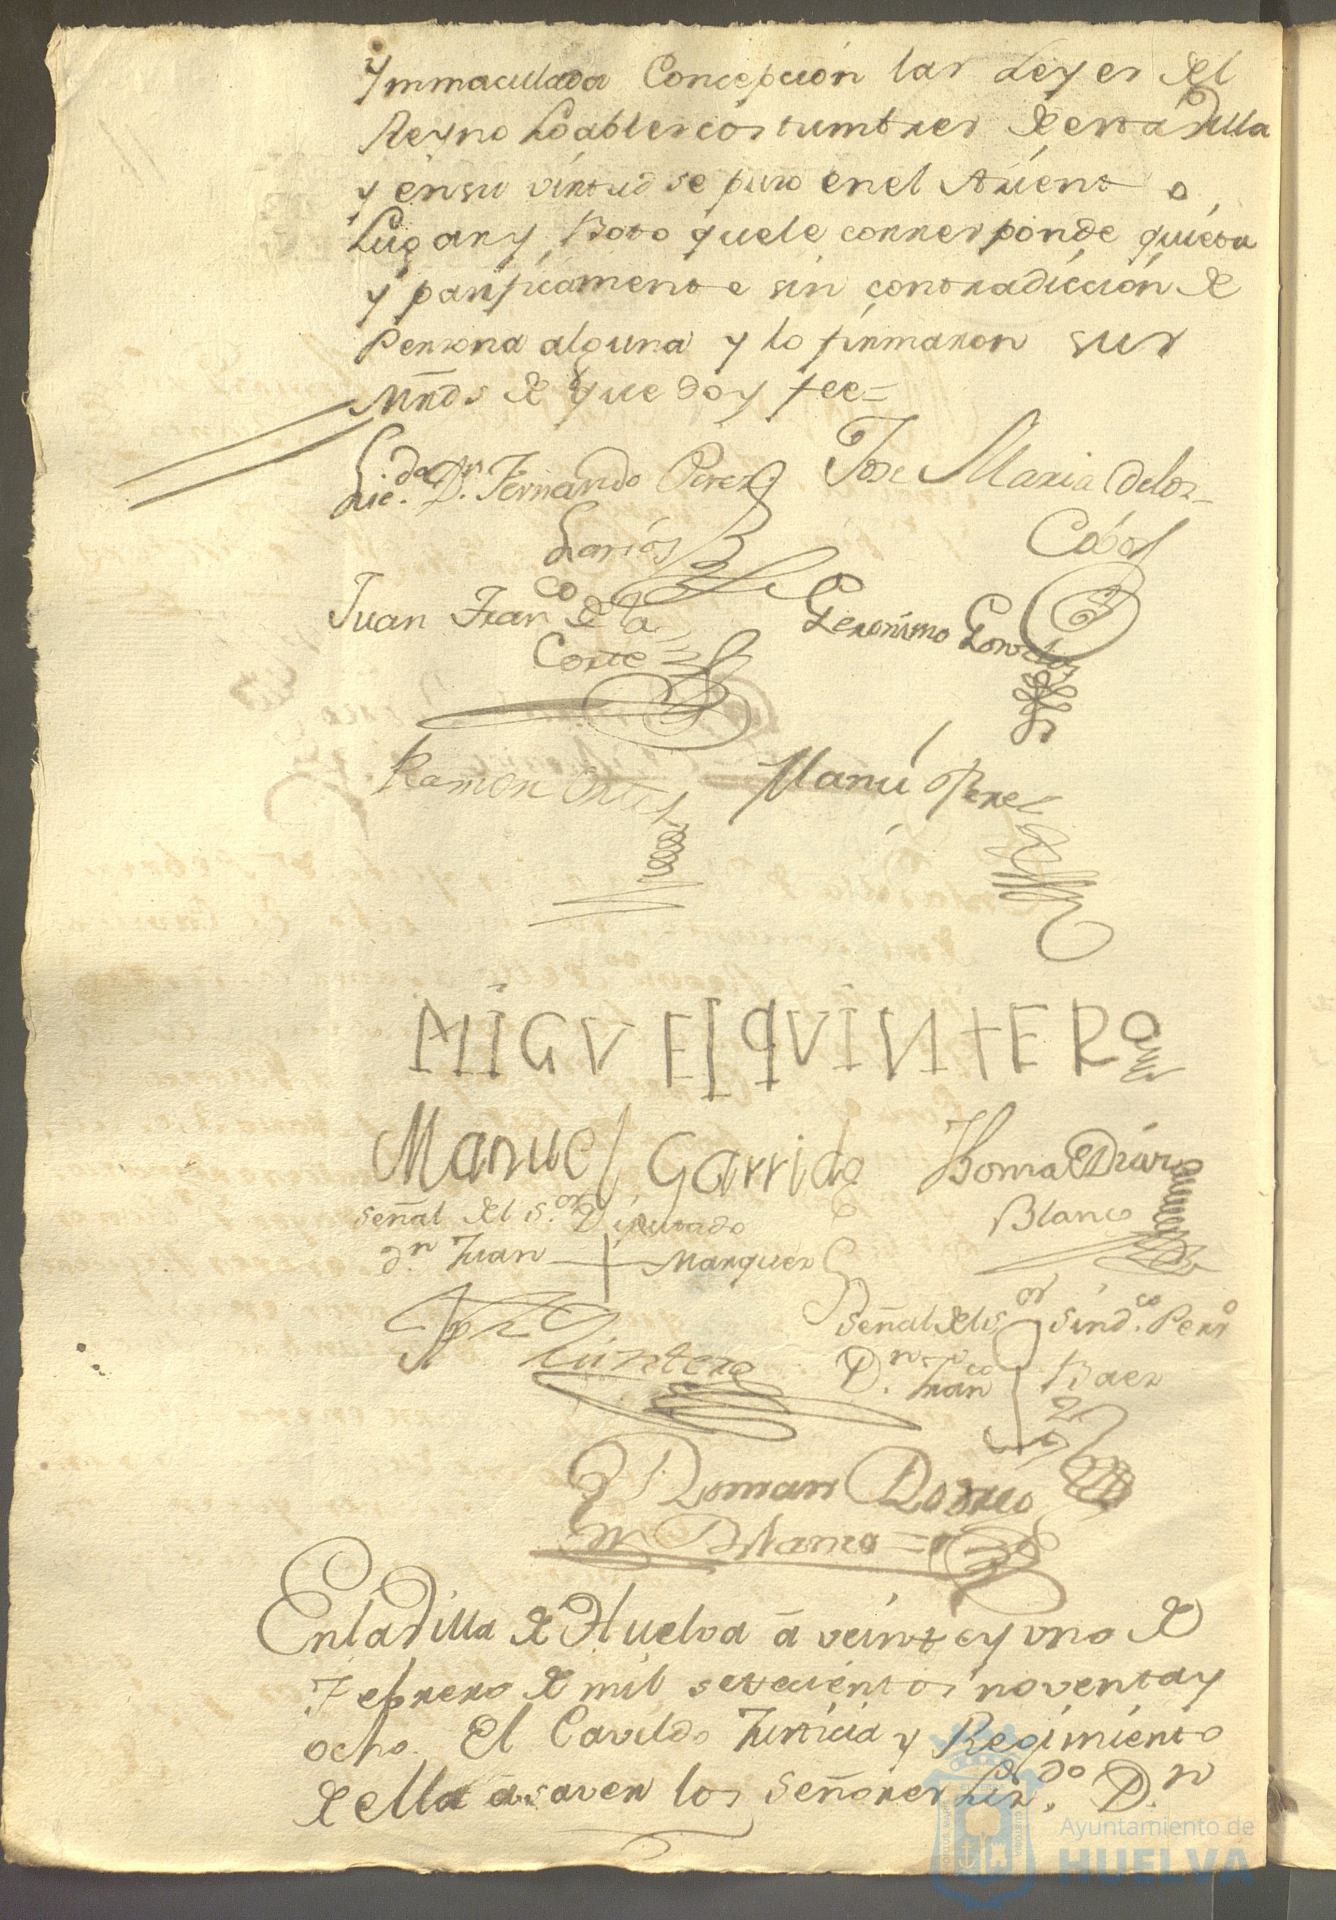 Ynmaculada Concepción las Leyes del
Reyno Loables costumbres de esta Villa
y en su virtud se puso en el Asiento
Lugar y Boto que le corresponde quieta
y pasificamente sin contradiccion de
Persona alguna y lo firmaron sus
Mrds de que doy fee=
Licdo Dn Fernando Perez Jose Maria de los
Larios Cobos
Juan Franco de la Geronimo
Corte
Ramon Ortiz Manu Perez
MIGVEL QVINTERO
Manuel Garrido Thomas
Blanco
Señal del sor Diputado
dn Juan Marquez
Quintero Señal del sor Sindco Pero
Dn Franco Baez
Roman
Blanco
En la Villa de Huelva á veinte y uno de
Febrero de mil setecientos noventa y
ocho. El Cavildo Justicia y Regimiento
de ella á saver los Señores Lizdo Dn
Ayuntamiento de
HUELVA